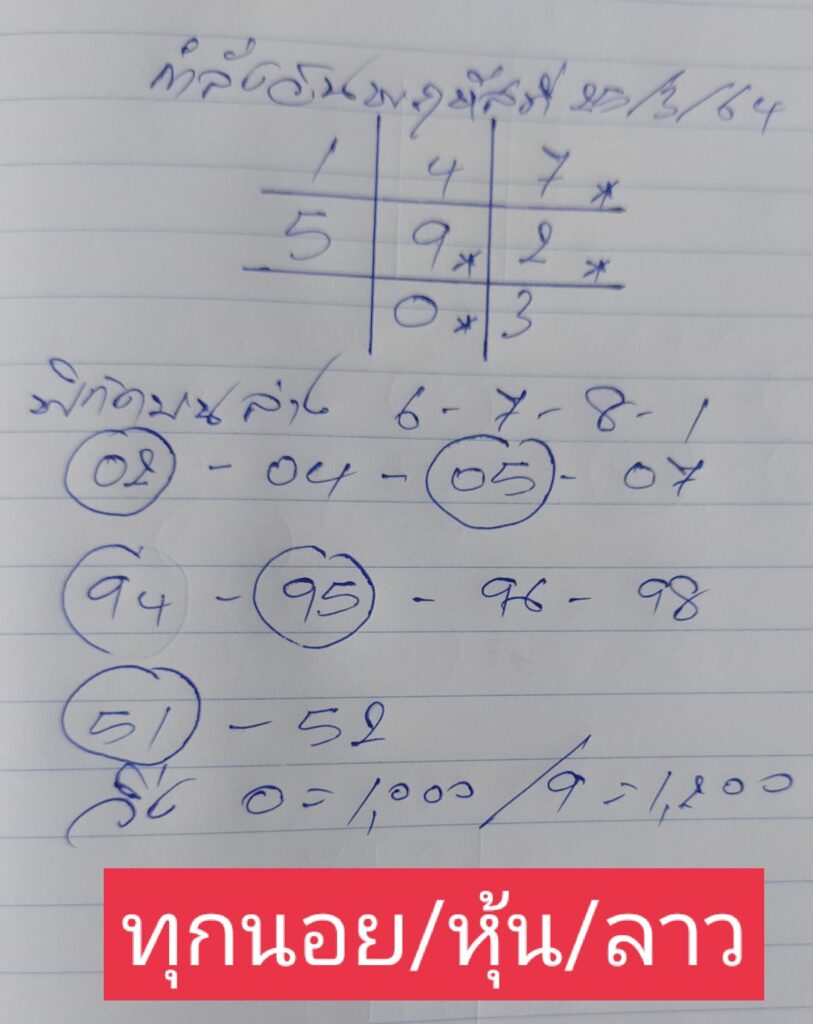 กำลังวันพฤหัสบดี 25/3/64
1 4 7*
5 9* 2*
0* 3
พิกัดบนล่าง 6-7-8-1
02 - 04 - 05 - 07
94 - 95 - 96 - 98
51 - 52
วิ่ง 0 = 1,000 / 9 = 1,200
ทุกนอย/หุ้น/ลาว